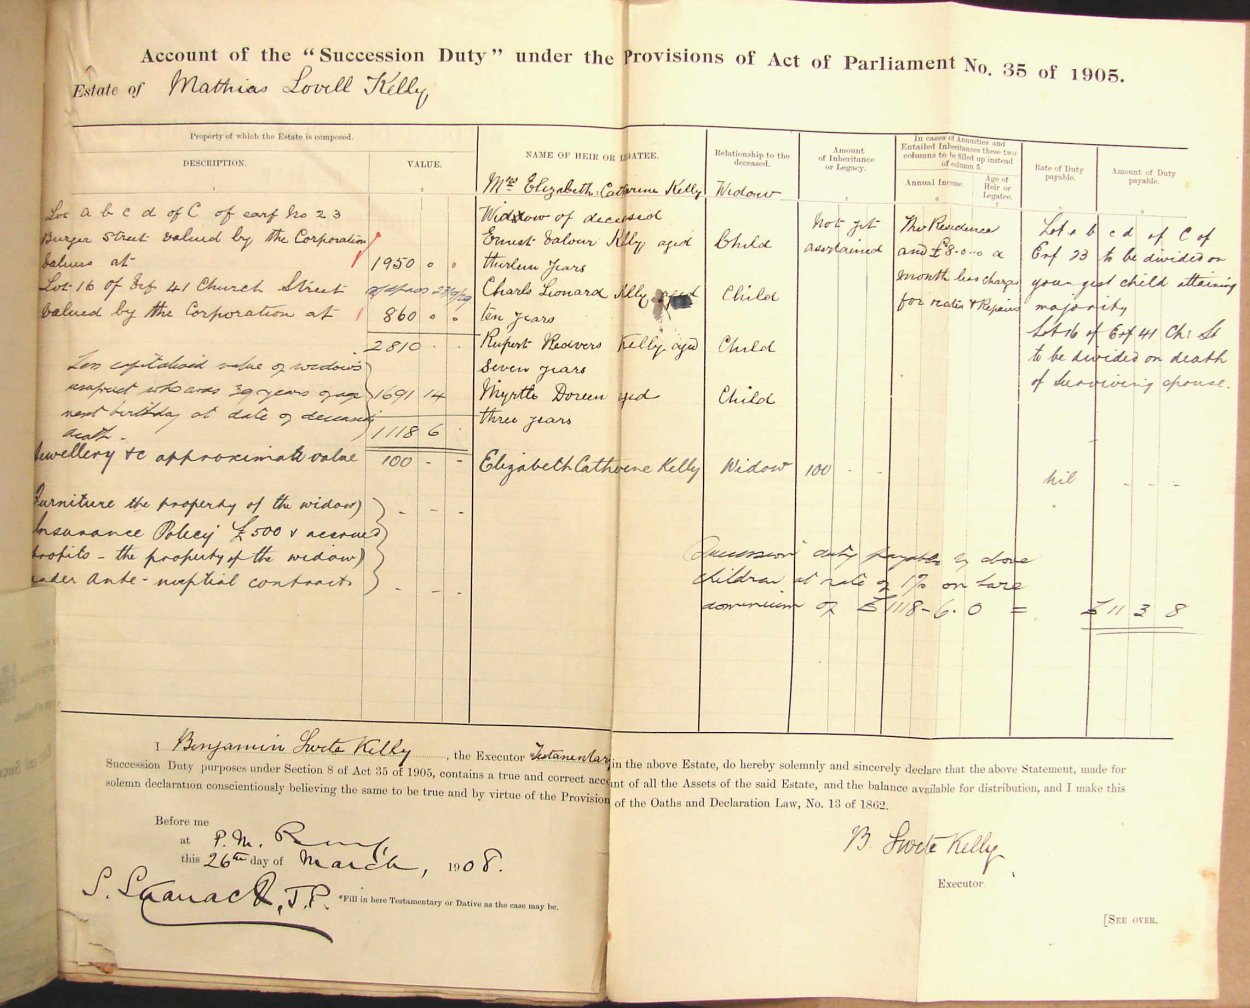 Account of the “Succession Duty” under the Provisions of Act of Parliament No. 35 of 1905.
Estate of Mathias Lovell Kelly
Property of which the Estate is composed.
DESCRIPTION.
VALUE.
NAME OF HEIR OR LEGATEE.
Relationship to the deceased.
Amount of Inheritance or Legacy.
In cases of Annuities and Entailed Inheritances these two columns to be filled up instead of column 5.
Annual Income.
Age of Heir or Legatee.
Rate of Duty payable.
Amount of Duty payable.
Lot a b c d of C of earf No 23
Burger Street valued by the Corporation
valuers at 1950 " "
Lot 16 of Erf 41 Church Street
valued by the Corporation at 860 " "
2810 - -
Less capitalised value of widow's
usufruct who was 39 years of age 1691 14
next birthday at date of deceased
death - 1118 6 -
Jewellery &c approximate value 100 - -
Furniture the property of the widow) - - -
Insurance Policy £500 & accrued
profits - the property of the widow)
under ante-nuptial contract - - -
Mrs Elizabeth Catherine Kelly Widow
Widow of deceased
Ernest Valour Kelly aged Child
thirteen years
Charls Leonard Kelly aged Child
ten years
Rupert Redvers Kelly aged Child
seven years
Myrtle Doreen aged Child
three years
Elizabeth Catherine Kelly Widow 100 - - nil - - -
Not yet
ascertained
The Residence
and £8.0.0 a
month less charges
for rates & Repairs
Lot a b c d of C of
Erf 23 to be divided on
youngest child attaining
majority
Lot 16 of Erf 41 Ch: St
to be divided on death
of surviving spouse.
Succession duty payable by above
children at rate of 1% on bare
dominium of £1118-6-0 = £11 3 8
I Benjamin Swete Kelly, the Executor *Testamentary in the above Estate, do hereby solemnly and sincerely declare that the above Statement, made for
Succession Duty purposes under Section 8 of Act 35 of 1905, contains a true and correct account of all the Assets of the said Estate, and the balance available for distribution, and I make this
solemn declaration conscientiously believing the same to be true and by virtue of the Provisions of the Oaths and Declaration Law, No. 13 of 1862.
Before me
at P. M. Burg,
this 26th day of March, 1908.
J.P.
*Fill in here Testamentary or Dative as the case may be.
B. Swete Kelly
Executor.
[SEE OVER.